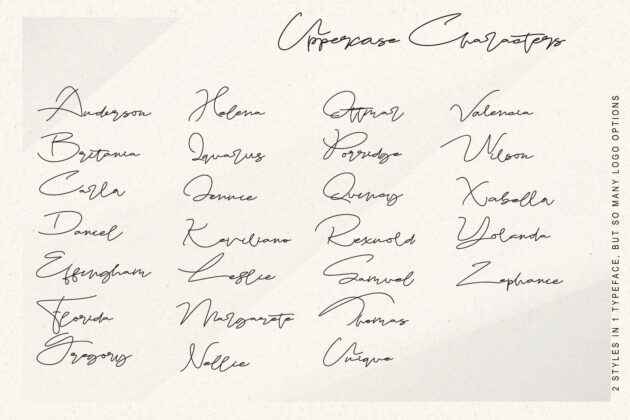 Uppercase Characters
Anderson
Britania
Carlla
Daniel
Effingham
Florida
Gregory
Helena
Iquarius
Jennie
Kaviliano
Leslie
Margarete
Nellie
Ottmar
Porridge
Quenay
Rexnold
Samuel
Thomas
Unique
Valencia
Wilson
Xabella
Yolanda
Zephanie
2 STYLES IN 1 TYPEFACE, BUT SO MANY LOGO OPTIONS